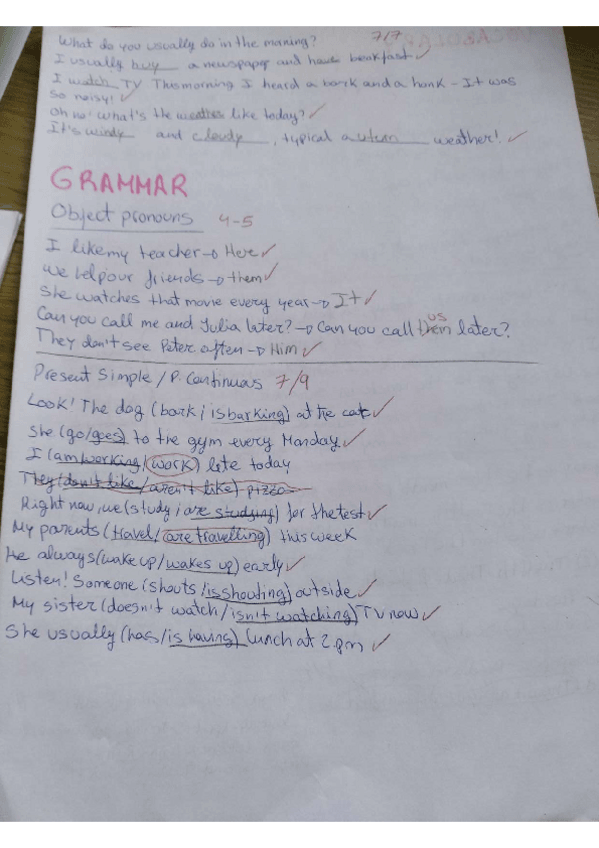 What do you usually do in the morning? 7/7
I usually buy a newspaper and have breakfast ✓
I watch TV This morning I heard a bark and a honk - It was
so noisy! ✓
Oh no! What's the weather like today? ✓
It's windy and cloudy, typical autumn weather! ✓
GRAMMAR
Object pronouns 4-5
I like my teacher → Here ✓
We help our friends → them ✓
She watches that movie every year → It ✓
Can you call me and Julia later? → Can you call them us later?
They don't see Peter often → Him ✓
Present Simple / P. Continuous 7/9
Look! The dog (bark / is barking) at the cat ✓
She (go/goes) to the gym every Monday ✓
I (am working / work) late today
They (don't like / aren't like) pizza
Right now, we (study / are studying) for the test ✓
My parents (travel / are travelling) this week
He always (wake up / wakes up) early ✓
Listen! Someone (shouts / is shouting) outside ✓
My sister (doesn't watch / isn't watching) TV now ✓
She usually (has / is having) lunch at 2 pm ✓